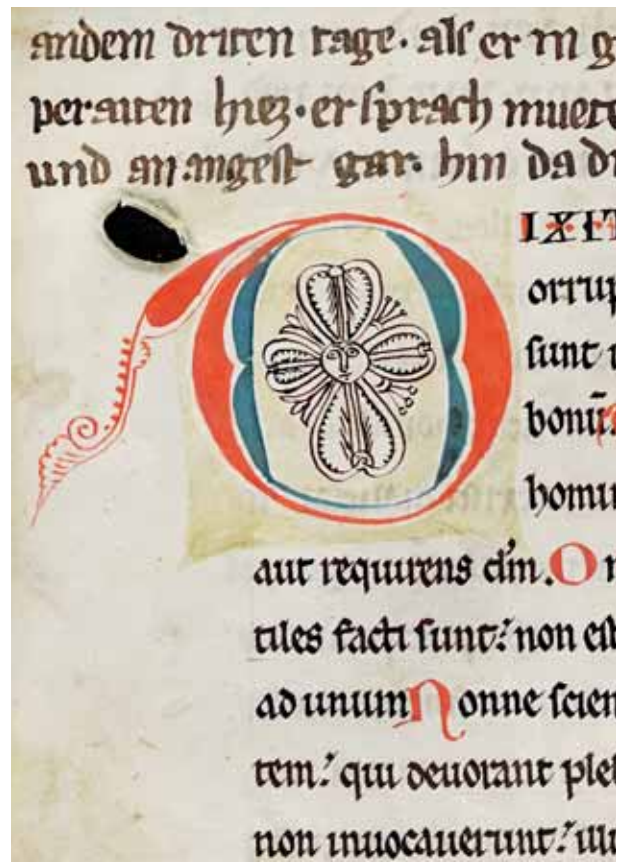 andem driten tage· alſ er in g
peraiten hiez· er ſprach muete
und an angeſt gar· hin da di
DIXIT
orrup
ſunt
bonū.
homi
aut requirens dm̄. On
tiles facti ſunt: non eſt
ad unum Nonne ſcien
tem: qui deuorant pleb
non inuocauerunt: illi